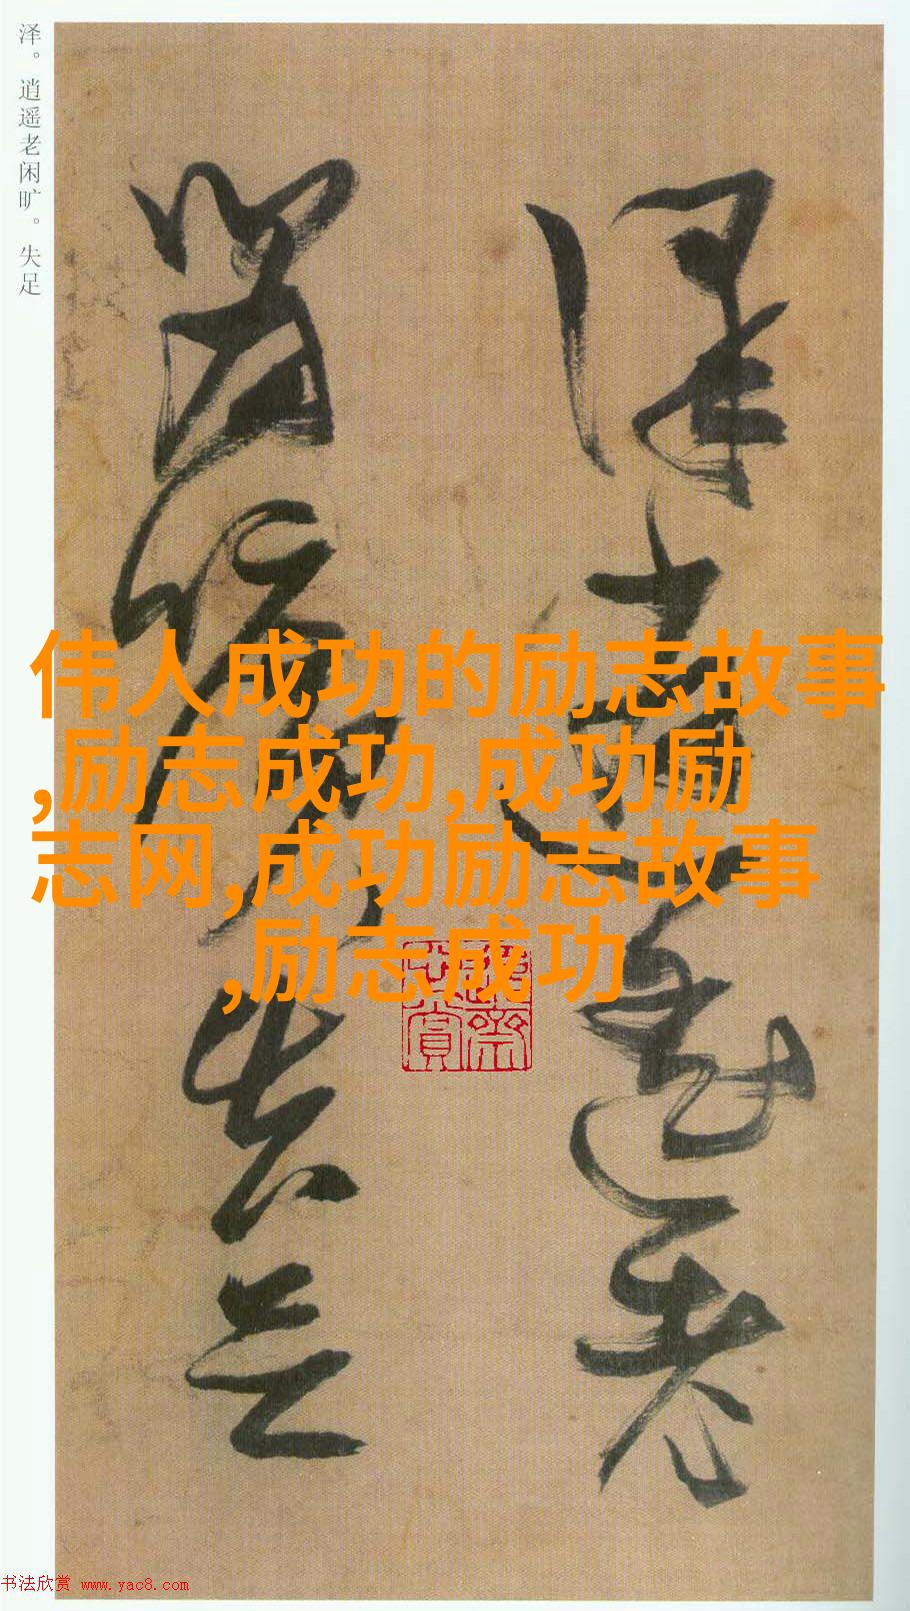 泽。逍遥老闲旷。失足
泽逍遥老
闲旷失足
伟人成功的励志故事
,励志成功,成功励
志网,成功励志故事
,励志成功
书法欣赏 www.yac8.com